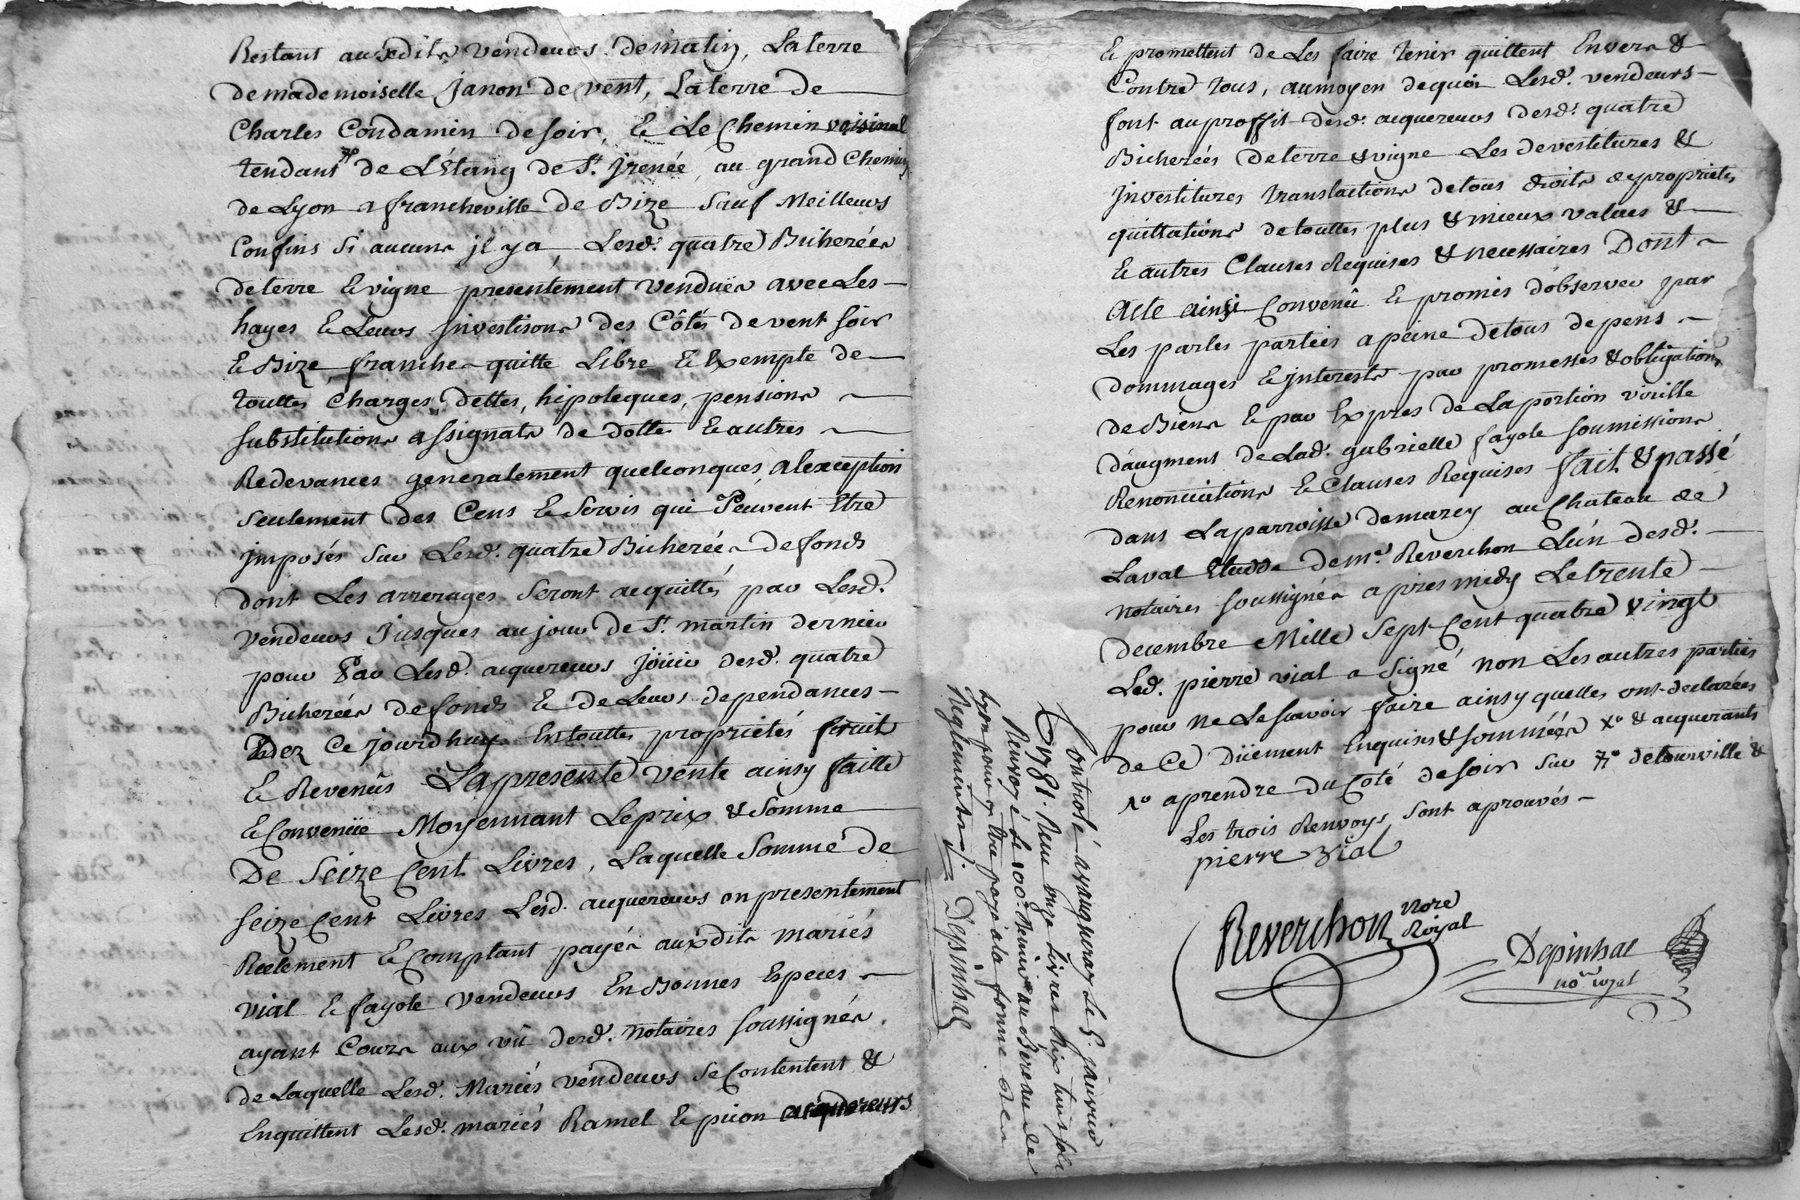 Restant auxdits vendeurs de matin, La terre
de mademoiselle Janon de vent, La terre de
Charles Condamin de soir, & Le Chemin voisinal
tendant de L'Etang de St. Jrenée, au grand Chemin
de Lyon a francheville de Bize Sauf Meilleurs
Confins Si aucuns jl y a, Lesd. quatre Bicherées
de terre & vigne presentement vendües avec Les
hayes & Leurs Jnvestisons des Côtés de vent soir
& Bize franche quitte Libre & Exempte de
touttes Charges, Dettes, hipoteques, pensions
Substitutions assignats de dotte & autres
Redevances generalement quelconques, a lexception
Seulement des Cens & Servis qui Peuvent Etre
jmposés sur Lesd. quatre Bicherées de fonds
dont Les arrerages Seront acquittés par Lesd.
Vendeurs Jusques au jour de St. martin dernier
pour Par Lesd. acquereurs joüir desd. quatre
Bicherées de fonds & de Leurs dependances
Dez Ce jourdhuy En touttes proprietés fruit
& Revenûs La presente vente ainsy faitte
& Convenüe Moyennant Le prix & Somme
De Seize Cent Livres, Laquelle Somme de
Seize Cent Livres Lesd. acquereurs on presentement
Réelement & Comptant payés auxdits mariés
Vial & fayole vendeurs En Bonnes Especes
ayant Cours aux vû desd. notaires Soussignés
de Laquelle Lesd. Mariés vendeurs Se Contentent &
Enquittent Lesd. mariés Ramel & picon acquereurs
& promettent de Les faire tenir quittent Envers &
Contre tous, au moyen de quoi Lesd. vendeurs
font au proffit desd. acquereurs desd. quatre
Bicherées de terre & vigne Les devestitures &
Jnvestitures translations de tous droits de proprietés
quittations de touttes plus & mieux values &
& autres Clauses Requises & necessaires Dont
Acte ainsi Convenû & promis d'observer par
Les partes parties a peine de tous depens
dommages & jnterests par promesses & obligations
de Biens & par Expres de La portion virille
d'augment de Lad. gabrielle fayole Soumissions
Renonciations & Clauses Requises fait & passé
dans La parroisse de marcy au Chateau de
Laval Etudde de me. Reverchon L'ün desd.
notaires Soussignés apres midy Le trente
decembre Mille Sept Cent quatre vingt
Led. pierre vial a Signé non Les autres parties
pour ne Le scavoir faire ainsy quelles ont declarées
de Ce Düement Enquises & sommées Xo & acquerants
No aprendre du Coté de soir sur de tourville &
Les trois Renvoys Sont aprouvés
pierre vial
Reverchon Nore
Royal
Depinhac
no. royal
Controlé a vaugneray Le 5. janvier
1781. Reçu onze Livres dix huit sols
Renvoyé Le 100e. denier au Bureau de
Lyon pour y Etre payé a la forme des
Reglements. Depinhac